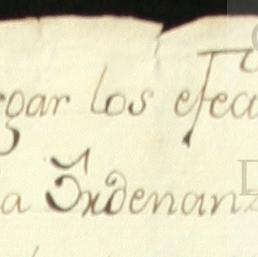 gar los efec
a Ordenanz